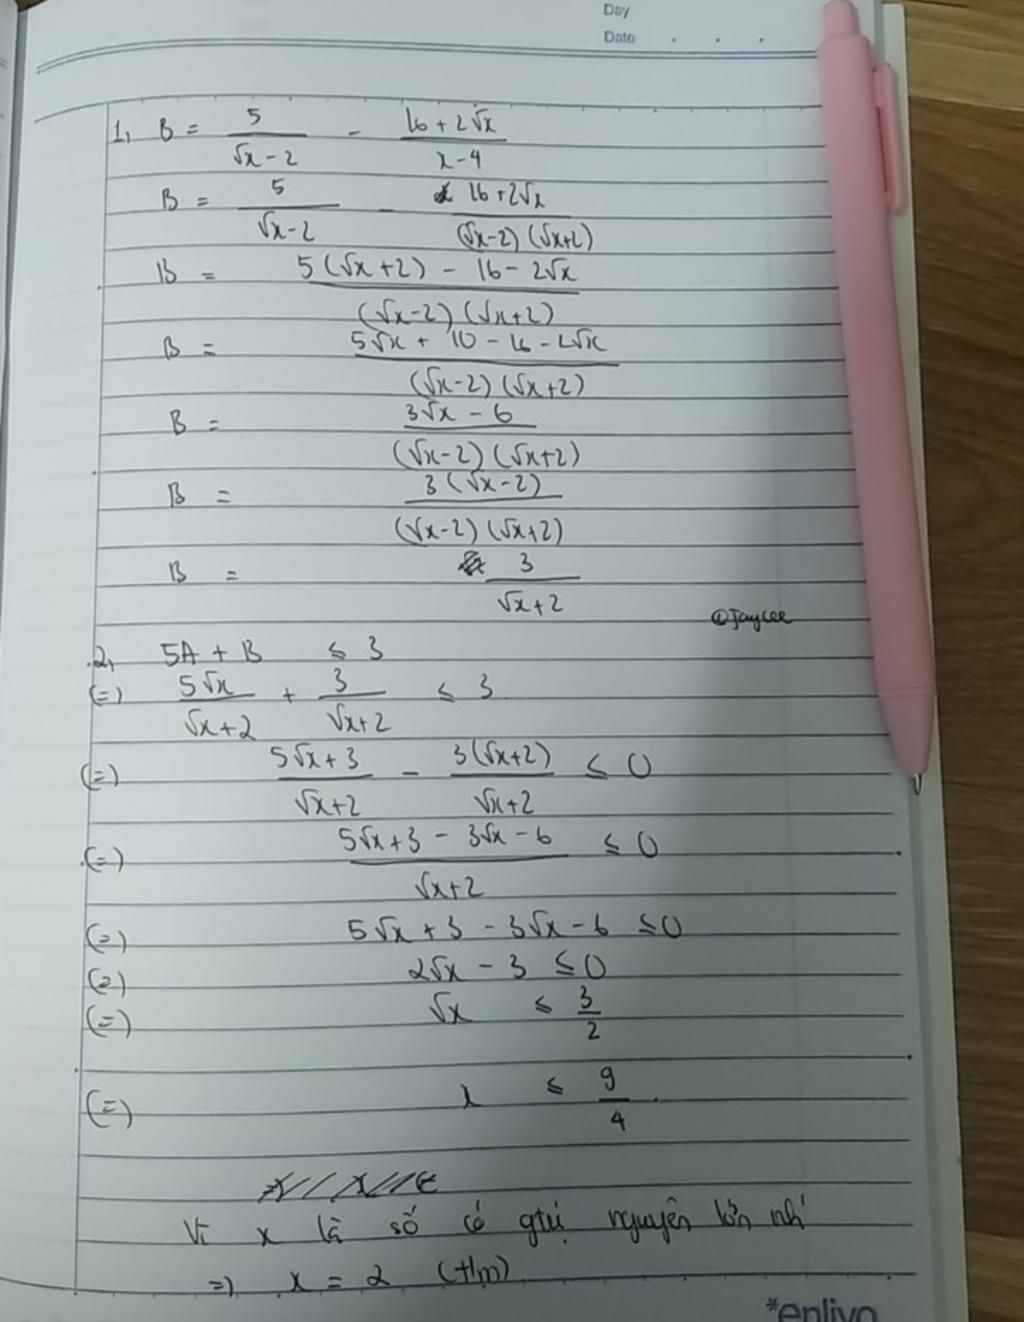 Day
Date . . .
1, B = 5/(√x - 2) - (16 + 2√x)/(x - 4)
B = 5/(√x - 2) - (16 + 2√x)/((√x - 2)(√x + 2))
B = (5(√x + 2) - 16 - 2√x)/((√x - 2)(√x + 2))
B = (5√x + 10 - 16 - 2√x)/((√x - 2)(√x + 2))
B = (3√x - 6)/((√x - 2)(√x + 2))
B = 3(√x - 2)/((√x - 2)(√x + 2))
B = 3/(√x + 2)
@Jaycee
2, 5A + B ≤ 3
(=) 5√x/(√x + 2) + 3/(√x + 2) ≤ 3
(=) (5√x + 3)/(√x + 2) - 3(√x + 2)/(√x + 2) ≤ 0
(=) (5√x + 3 - 3√x - 6)/(√x + 2) ≤ 0
(=) 5√x + 3 - 3√x - 6 ≤ 0
(=) 2√x - 3 ≤ 0
(=) √x ≤ 3/2
(=) x ≤ 9/4
Vì x là số có gtri nguyên lớn nhí
=> x = 2 (t/m)
*enlivo